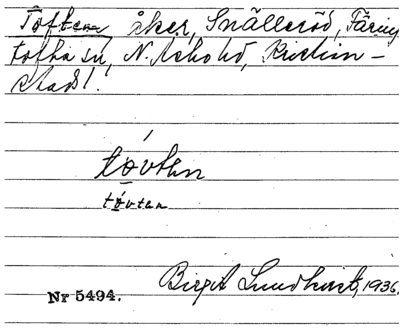 Toften åker, Snälleröd, Färing
tofta sn, N. Åsbo hd, Kristian-
stads l.
tóvten
tóvten
Birgit Lundkvist, 1936.
Nr 5494.